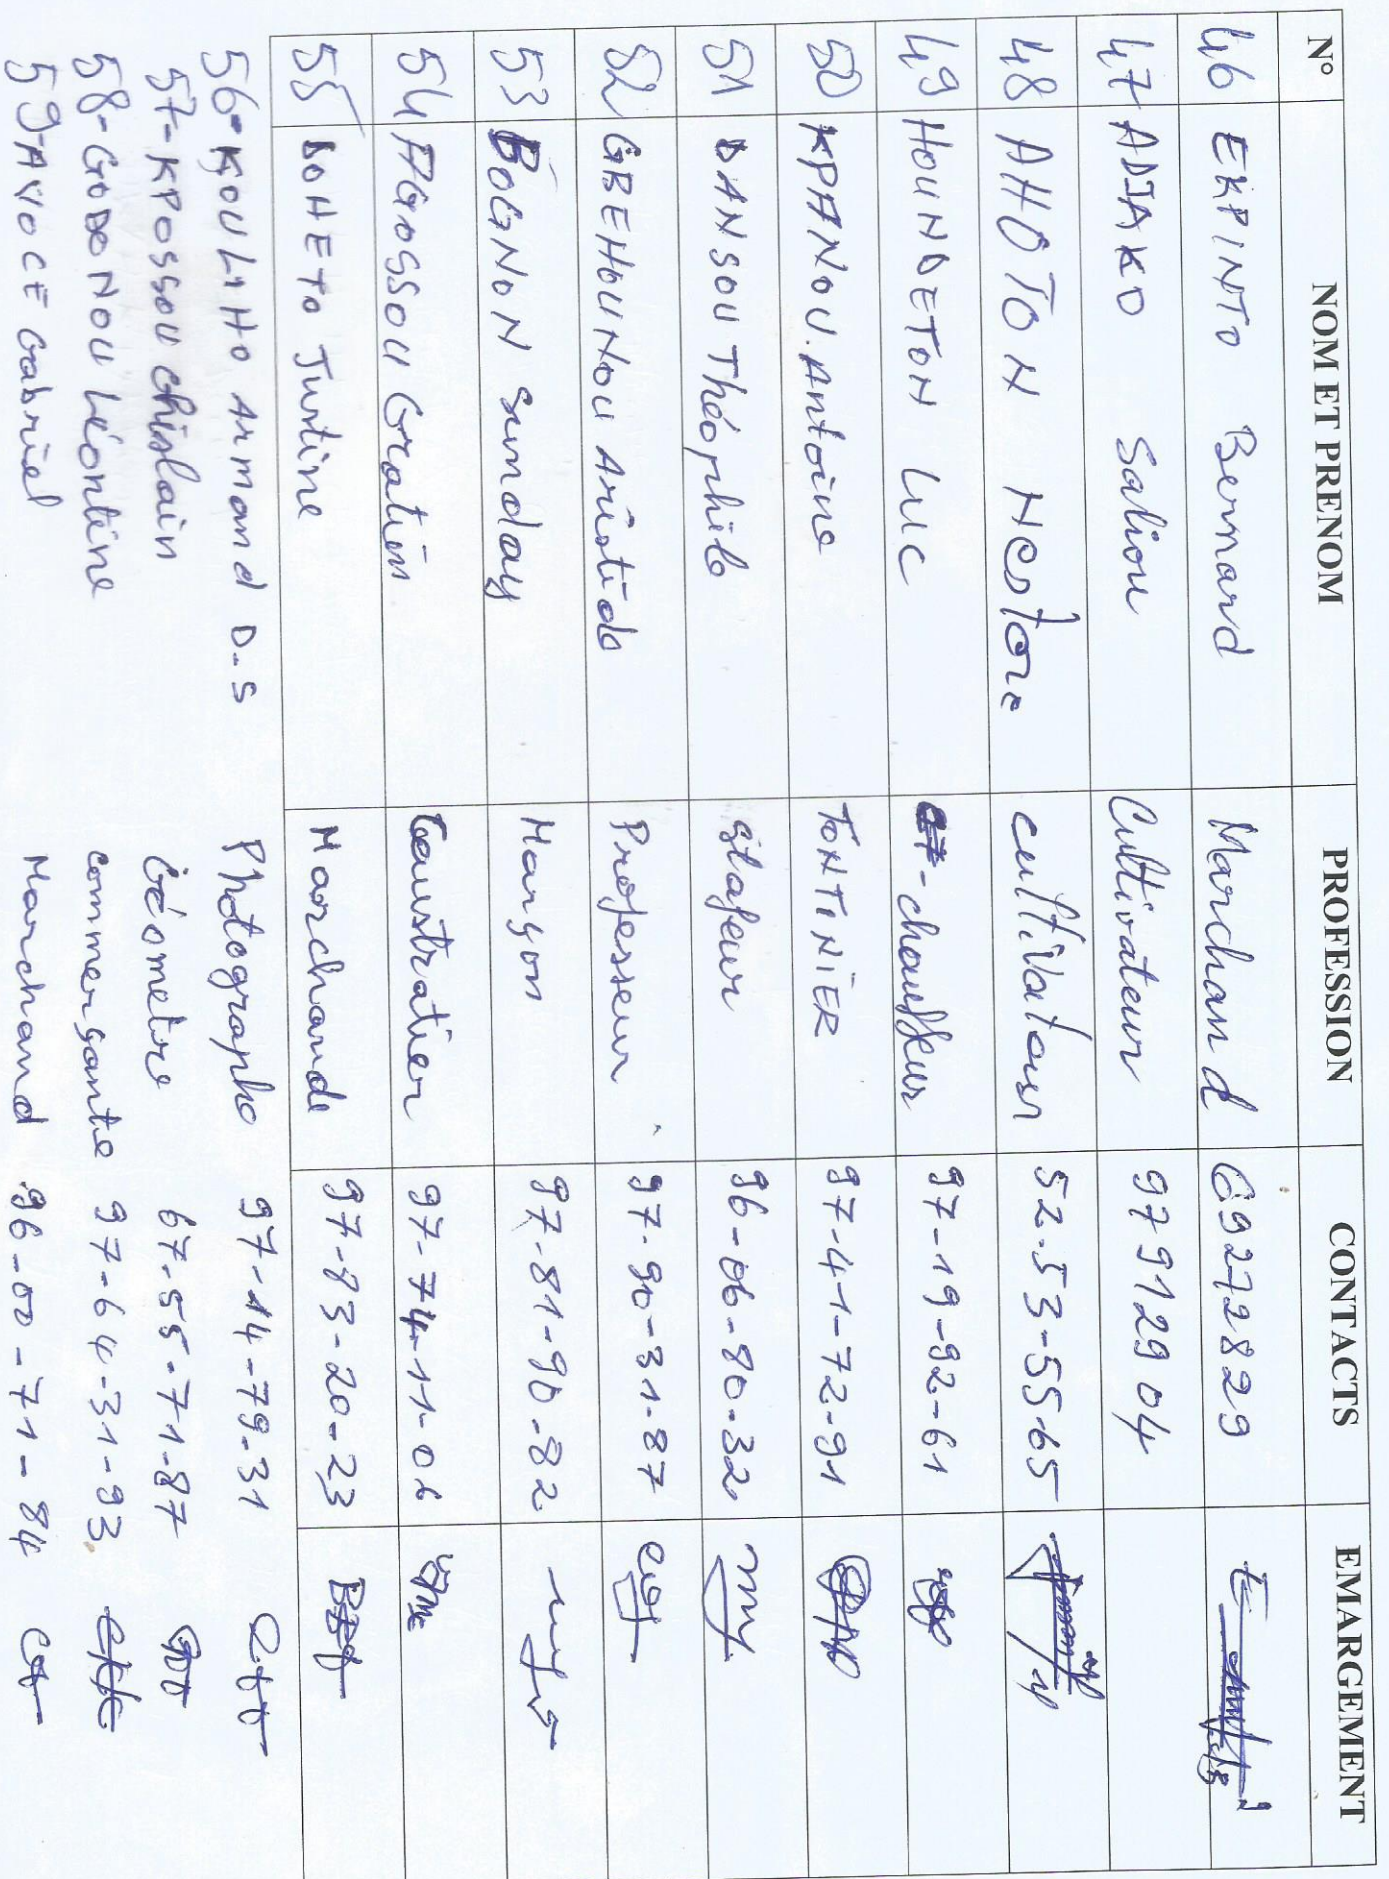 N° NOM ET PRENOM PROFESSION CONTACTS EMARGEMENT
46 EKPINTO Bernard Marchand 69272829
47 ADJAKO Saliou Cultivateur 97912904
48 AHOTON Nestore cultivateur 52.53-55-65
49 HOUNDETON Luc chauffeur 97-19-92-61
50 KPANOU. Antoine TONTINIER 97-41-72-91
51 DANSOU Théophile 96-06-80-32
52 GBEHOUNOU Aristide Professeur 97-90-31-87
53 BOGNON Sunday Marçon 97-81-90-82
54 AGOSSOU Gratien 97-74-11-06
55 DOHETO Justine Marchande 97-83-20-23
56- Armand D.S Photographe 97-14-79-31
57-KPOSSOU Ghislain Géomètre 67-55-71-87
58-GODONOU Léontine commerçante 97-64-31-93
59-AVOCE Gabriel Marchand 96-00-71-84